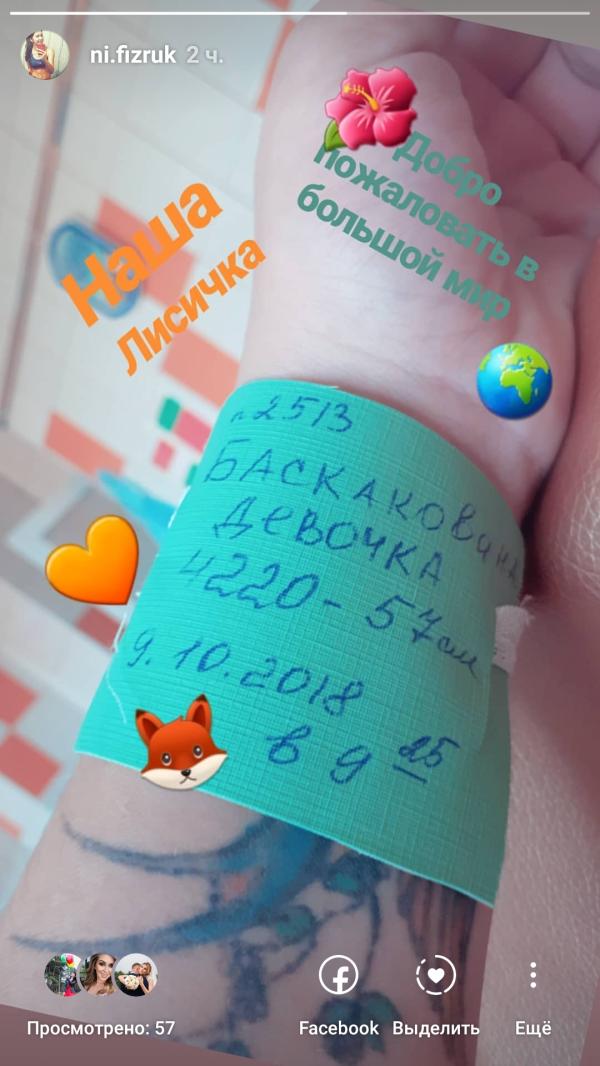 ni.fizruk 2 ч.
Добро
пожаловать в
большой мир
Наша
Лисичка
п. 2513
БАСКАКОВИНА
ДЕВОЧКА
4220- 57см
9.10.2018
в 9 25
Просмотрено: 57
Facebook
Выделить
Ещё